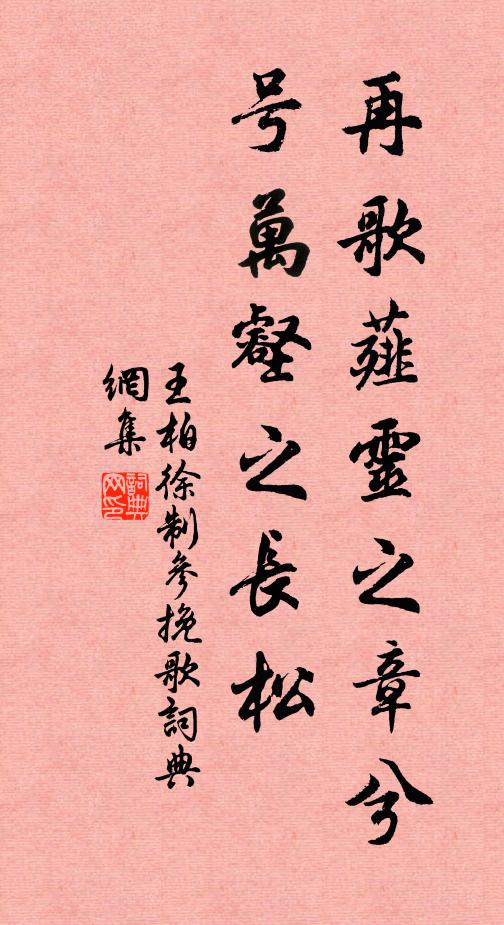 再歌薤靈之章兮
号萬壑之長松
王柏徐制參挽歌詞典
網集
詞典
网印